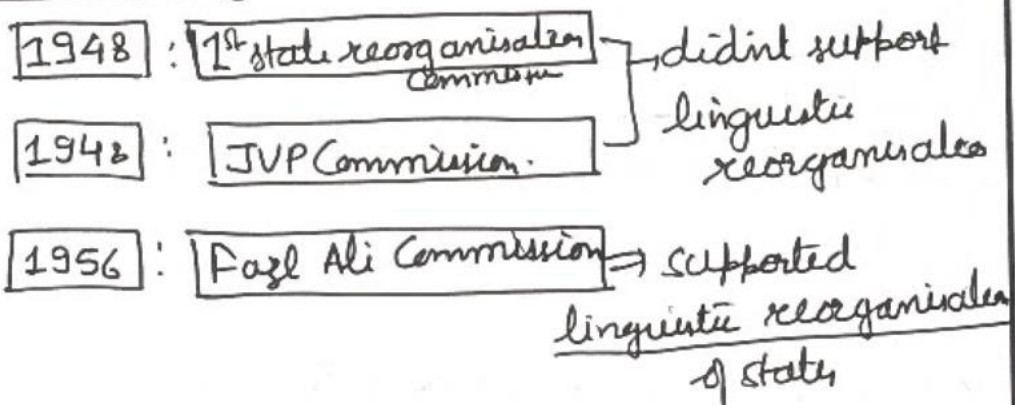 1948 : 1st state reorganisation commission didint support
1948 : JVP Commission. linguistic reorganisation
1956 : Fazl Ali Commission ⇒ supported
linguistic reorganisation
of states